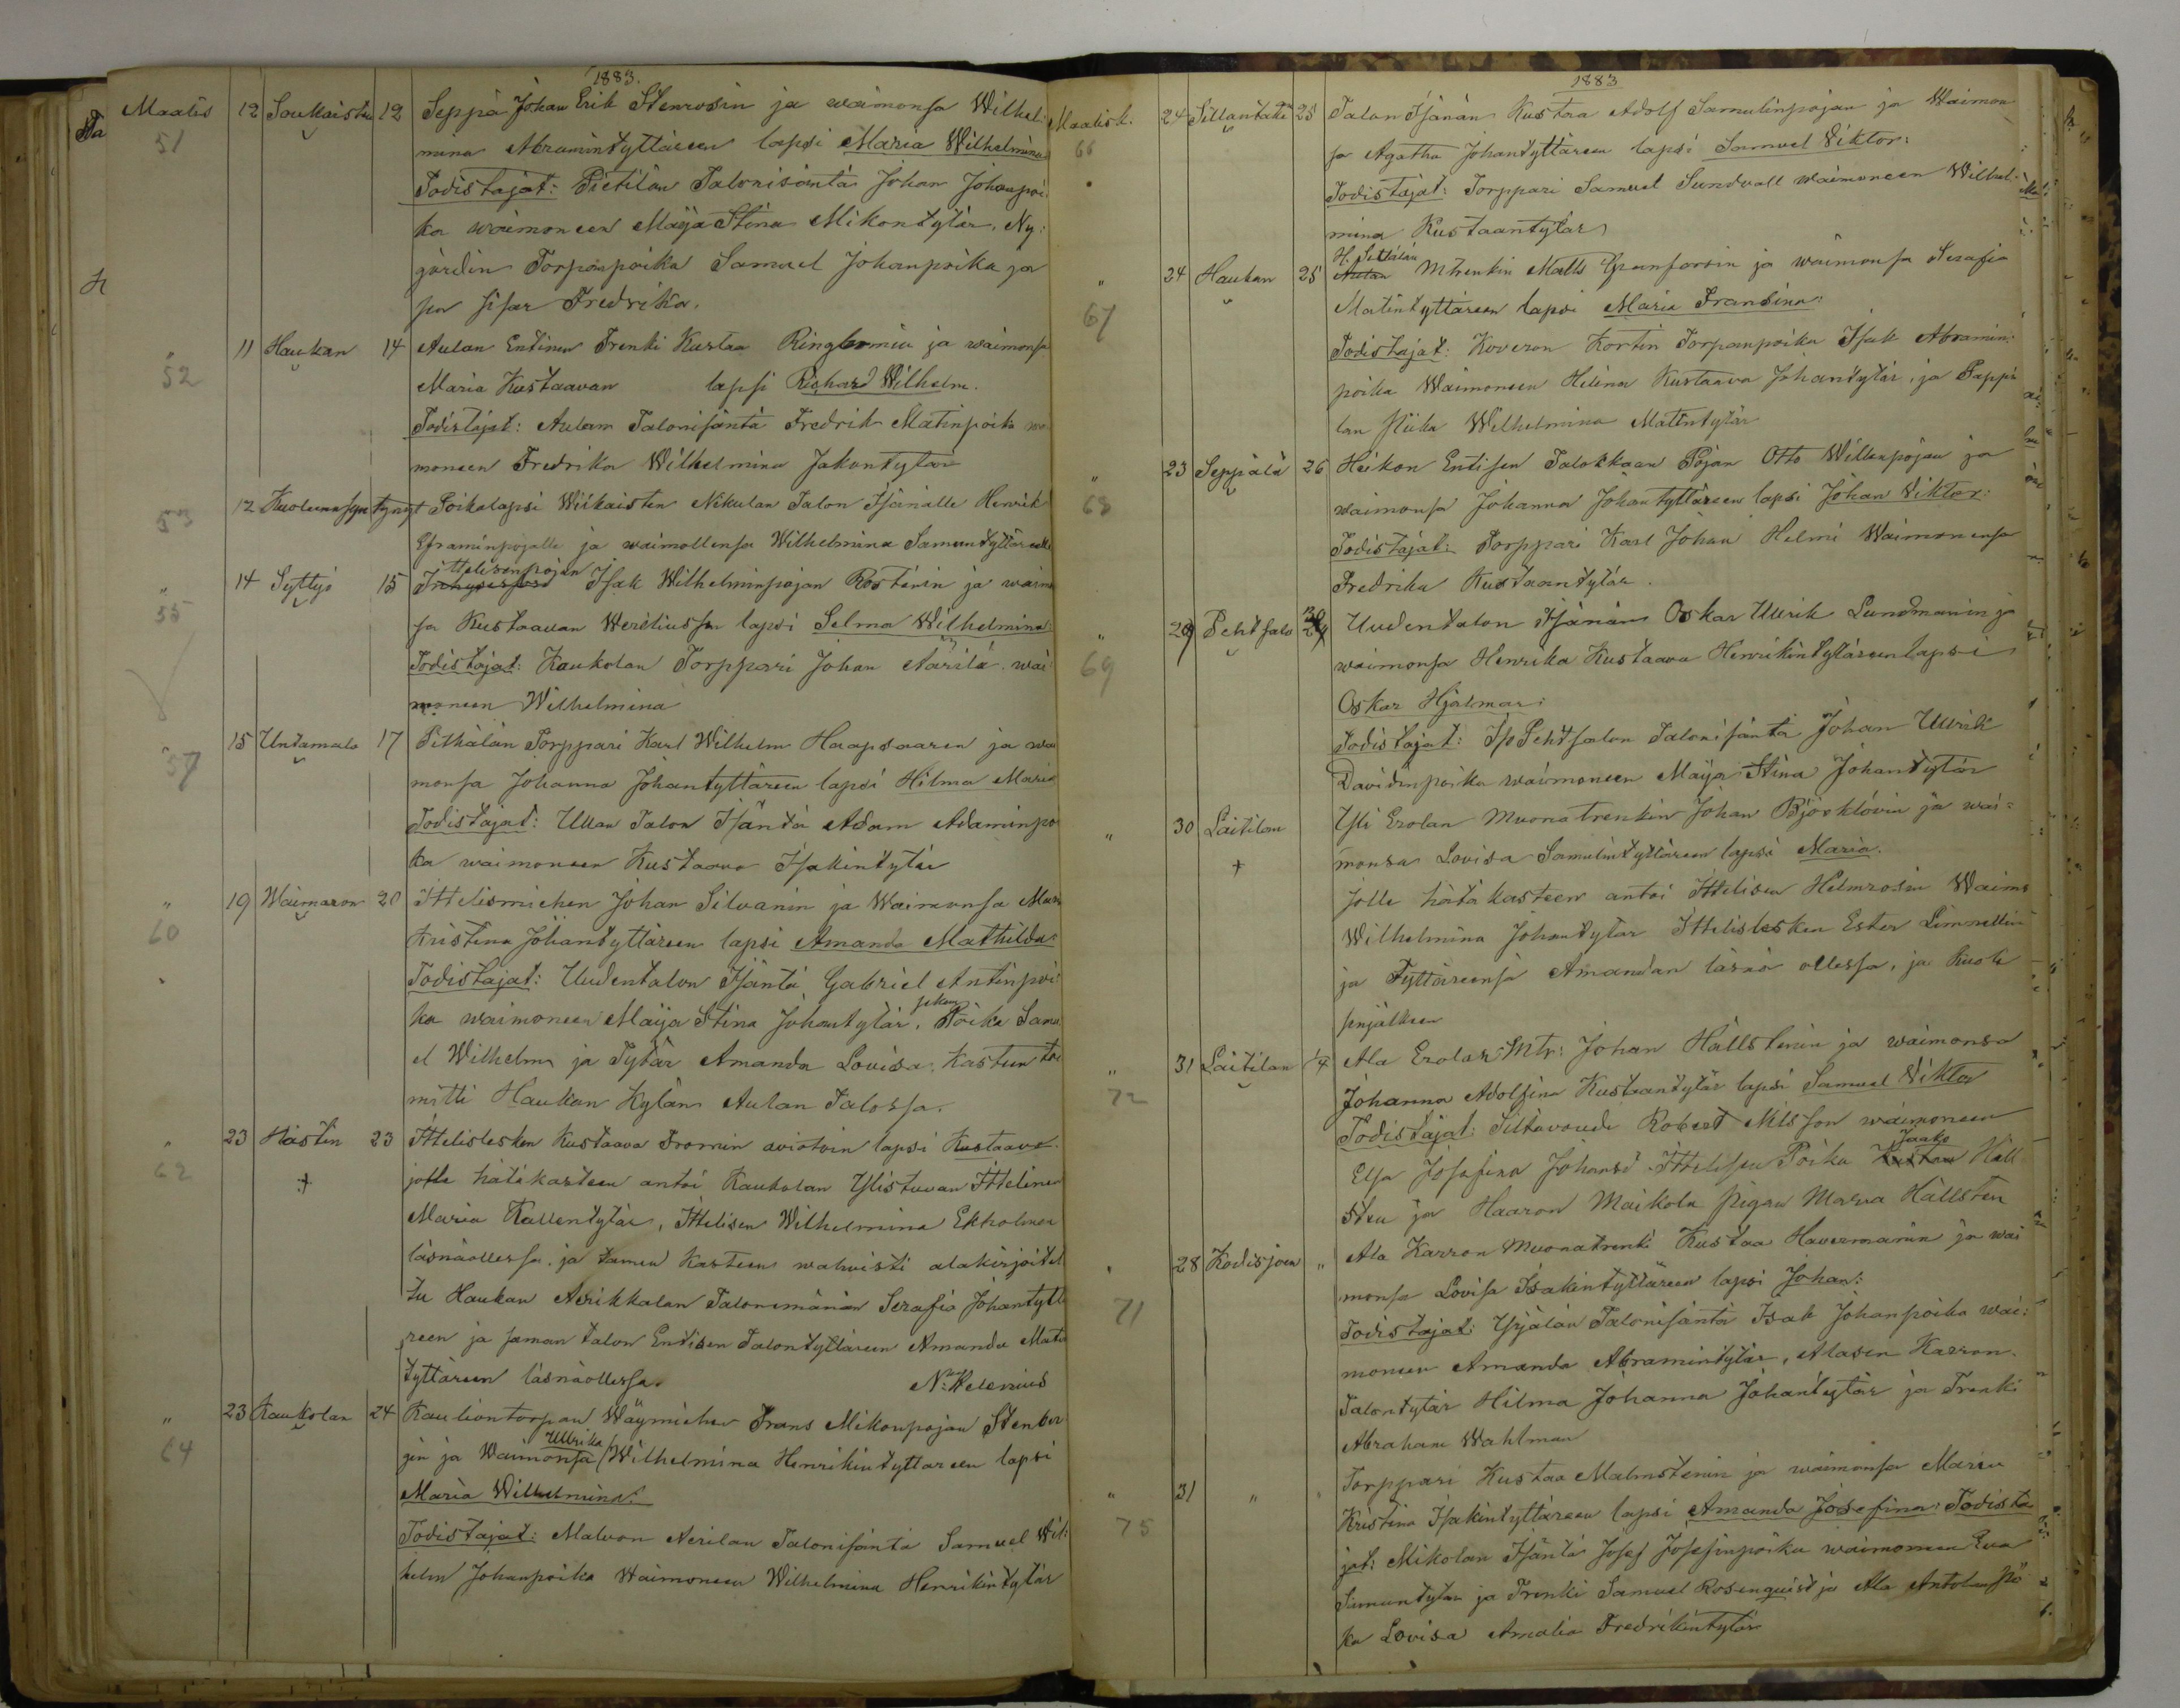 1883.
Maalis 12 Soukaisten 12 Seppä Johan Erik Stenrosin ja waimonsa Wilhel:
51 mina Abramintyttäreen lapsi Maria Wilhelmina:
Todistajat: Pietilän Talonisäntä Johan Johanpoi:
ka waimoneen Maija Stina Mikontytär, Ny:
gårdin Torpanpoika Samuel Johanpoika ja
sisar Fredrika.
" 11 Haukan 14 Aulan Entinen Trenki Kustaa Ringbomin ja waimonsa
52 Maria Kustaavan lapsi Richard Wilhelm.
Todistajat: Aulan Talonisäntä Fredrik Matinpoika wai
moneen Fredrika Wilhelmina Jakontytär
53 12 Kuolleenasyntynyt Poikalapsi Wiikaisten Nikulan Talon Isänälle Henrik
Eframinpojalle ja waimollensa Wilhelmina Samuntyttärelle
" 14 Syttyä 15 Ittelisenpojan Isak Wilhelminpojan Rostenin ja waimon
55 sa Kustaavan Wereliussen lapsi Selma Wilhelmina:
Todistajat: Kaukolan Torppari Johan Äärilä wai:
moneen Wilhelmina
" 15 Untamala 17 Pitkälän Torppari Karl Wilhelm Haapsaaren ja wai
57 monsa Johanna Johantyttäreen lapsi Hilma Maria
Todistajat: Ullan Talon Isäntä Adam Adaminpoi
ka waimoneen Kustaava Isakintytär
" 19 Waimaron 20 Ittelismiehen Johan Silvanin ja Waimonsa Maria
60 Kristina Johantyttäreen lapsi Amanda Mathilda:
Todistajat: Uudentalon Isäntä Gabriel Antinpoi:
ka waimoneen Maija Stina Johantytär, Poika Samu
el Wilhelm ja Tytär Amanda Lovisa. Kasteen toi
mitti Haukan Kylän Aulan Talossa.
" 23 Hästin 23 Ittelislesken Kustaava Fromin aviotoin lapsi Kustaava.
62 † jolle hätäkasteen antoi Kaukolan Ylistuvan Ittelinen
Maria Kallentytär, Ittelisen Wilhelmina Ekholmen
läsnäollessa. ja tämän Kasteen wahvisti alakirjoitet
tu Haukan Aerikkalan Talonemännän Serafia Johantyttä
reen ja saman talon Entisen Talontyttäreen Amanda Matin
tyttäreen läsnäollessa. N. Helenius
" 23 Kaukolan 24 Rauliontorpan Wäymiehen Frans Mikonpojan Stenber
64 gin ja Waimonsa Ullrika Wilhelmina Henrikintyttäreen lapsi
Maria Wilhelmina:
Todistajat: Malvon Aerilan Talonisäntä Samuel Wil:
helm Johanpoika Waimoneen Wilhelmina Henrikintytär
1883
Maalisk. 24 Sillantaka 25 Talon Isänän Kustaa Adolf Samulinpojan ja Waimon
66 sa Agatha Johantyttäreen lapsi Samuel Viktor:
Todistajat: Torppari Samuel Sundvall waimoneen Wilhel:
mina Kustaantytär
" 24 Haukan 25 Aulan Mtrenkin Matts Granforsin ja waimonsa Serafia
67 Matintyttäreen lapsi Maria Fransina:
Todistajat: Koveron Kortin Torpanpoika Isak Abramin:
poika Waimoneen Helena Kustaava Johantytär, ja Pappi
lan Piika Wilhelmina Matintytär
" 23 Seppälä 26 Heikon Entisen Talokkaan Pojan Otto Willenpojan ja
68 waimonsa Johanna Johantyttäreen lapsi Johan Viktor:
Todistajat: Torppari Karl Johan Helmi Waimonensa
Fredrika Kustaantytär.
" 29 Pehtsalo Uudentalon Isänän Oskar Ullrik Lundmanin ja
69 waimonsa Henrika Kustaava Henrikintyttäreen lapsi
Oskar Hjalmar:
Todistajat: Iso Pehtsalon Talonisäntä Johan Ullrik
Davidinpoika waimoneen Maija Stina Johantytär
" 30 Laitilan Yli Erolan Muonatrenkin Johan Björklövin ja wai=
† monsa Lovisa Samulintyttäreen lapsi Maria.
jolle hätäkasteen antoi Ittelisen Helmrosin Waimo
Wilhelmina Johantytär Ittelislesken Ester Limnellin
ja Tyttäreensä Amandan läsnä ollessa, ja Kuoli
senjälkeen
" 31 Laitilan 1/4 Ala Erolan Mtr: Johan Hällstenin ja waimonsa
72 Johanna Adolfina Kustaantytär lapsi Samuel Viktor
Todistajat: Siltavoudi Robert Nilsson waimoneen
Elsa Josefina Johansd. Ittelisen Poika Jaako Häll
sten ja Haaron Maikola Piigan Maria Hällsten
" 28 Kodisjoen " Ala Karron Muonatrenki Kustaa Havermanin ja wai
71 monsa Lovisa Isakintyttäreen lapsi Johan:
Todistajat: Yrjälän Talonisäntä Isak Johanpoika wai:
moneen Amanda Abramintytär, Alasen Karron
Talontytär Hilma Johanna Johantytär ja Trenki
Abraham Wahlman
" 31 " Torppari Kustaa Malmstenin ja waimonsa Maria
75 Kristina Isakintyttäreen lapsi Amanda Josefina: Todista
jat: Mikolan Isäntä Josef Josefinpoika waimoneen Eva
Samuntytär ja Trenki Samuel Rosenquist ja Ala Antolan Pii
ka Lovisa Amalia Fredrikintytär